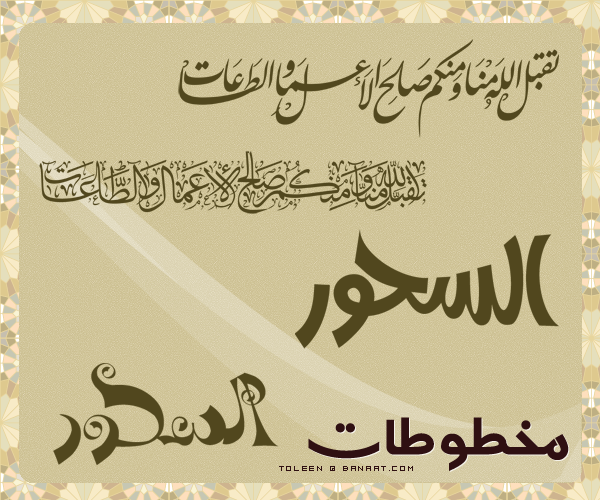 تقبل الله منا ومنكم صالح الاعمال والطاعات
تقبل الله منا ومنكم صالح الاعمال والطاعات
السحور
السحور
مخطوطات
TOLEEN @ BANAAT.COM